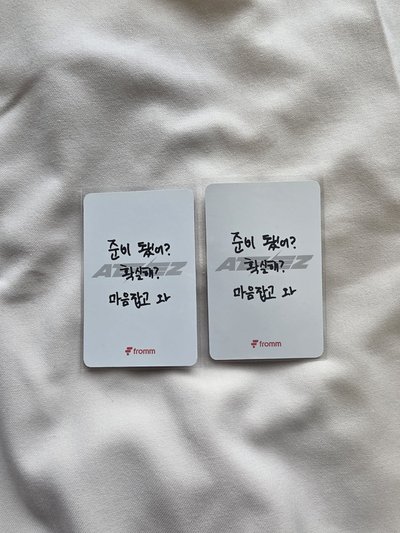 준비 됐어?
ATEEZ
확실해?
마음잡고 와
fromm
준비 됐어?
ATEEZ
확실해?
마음잡고 와
fromm